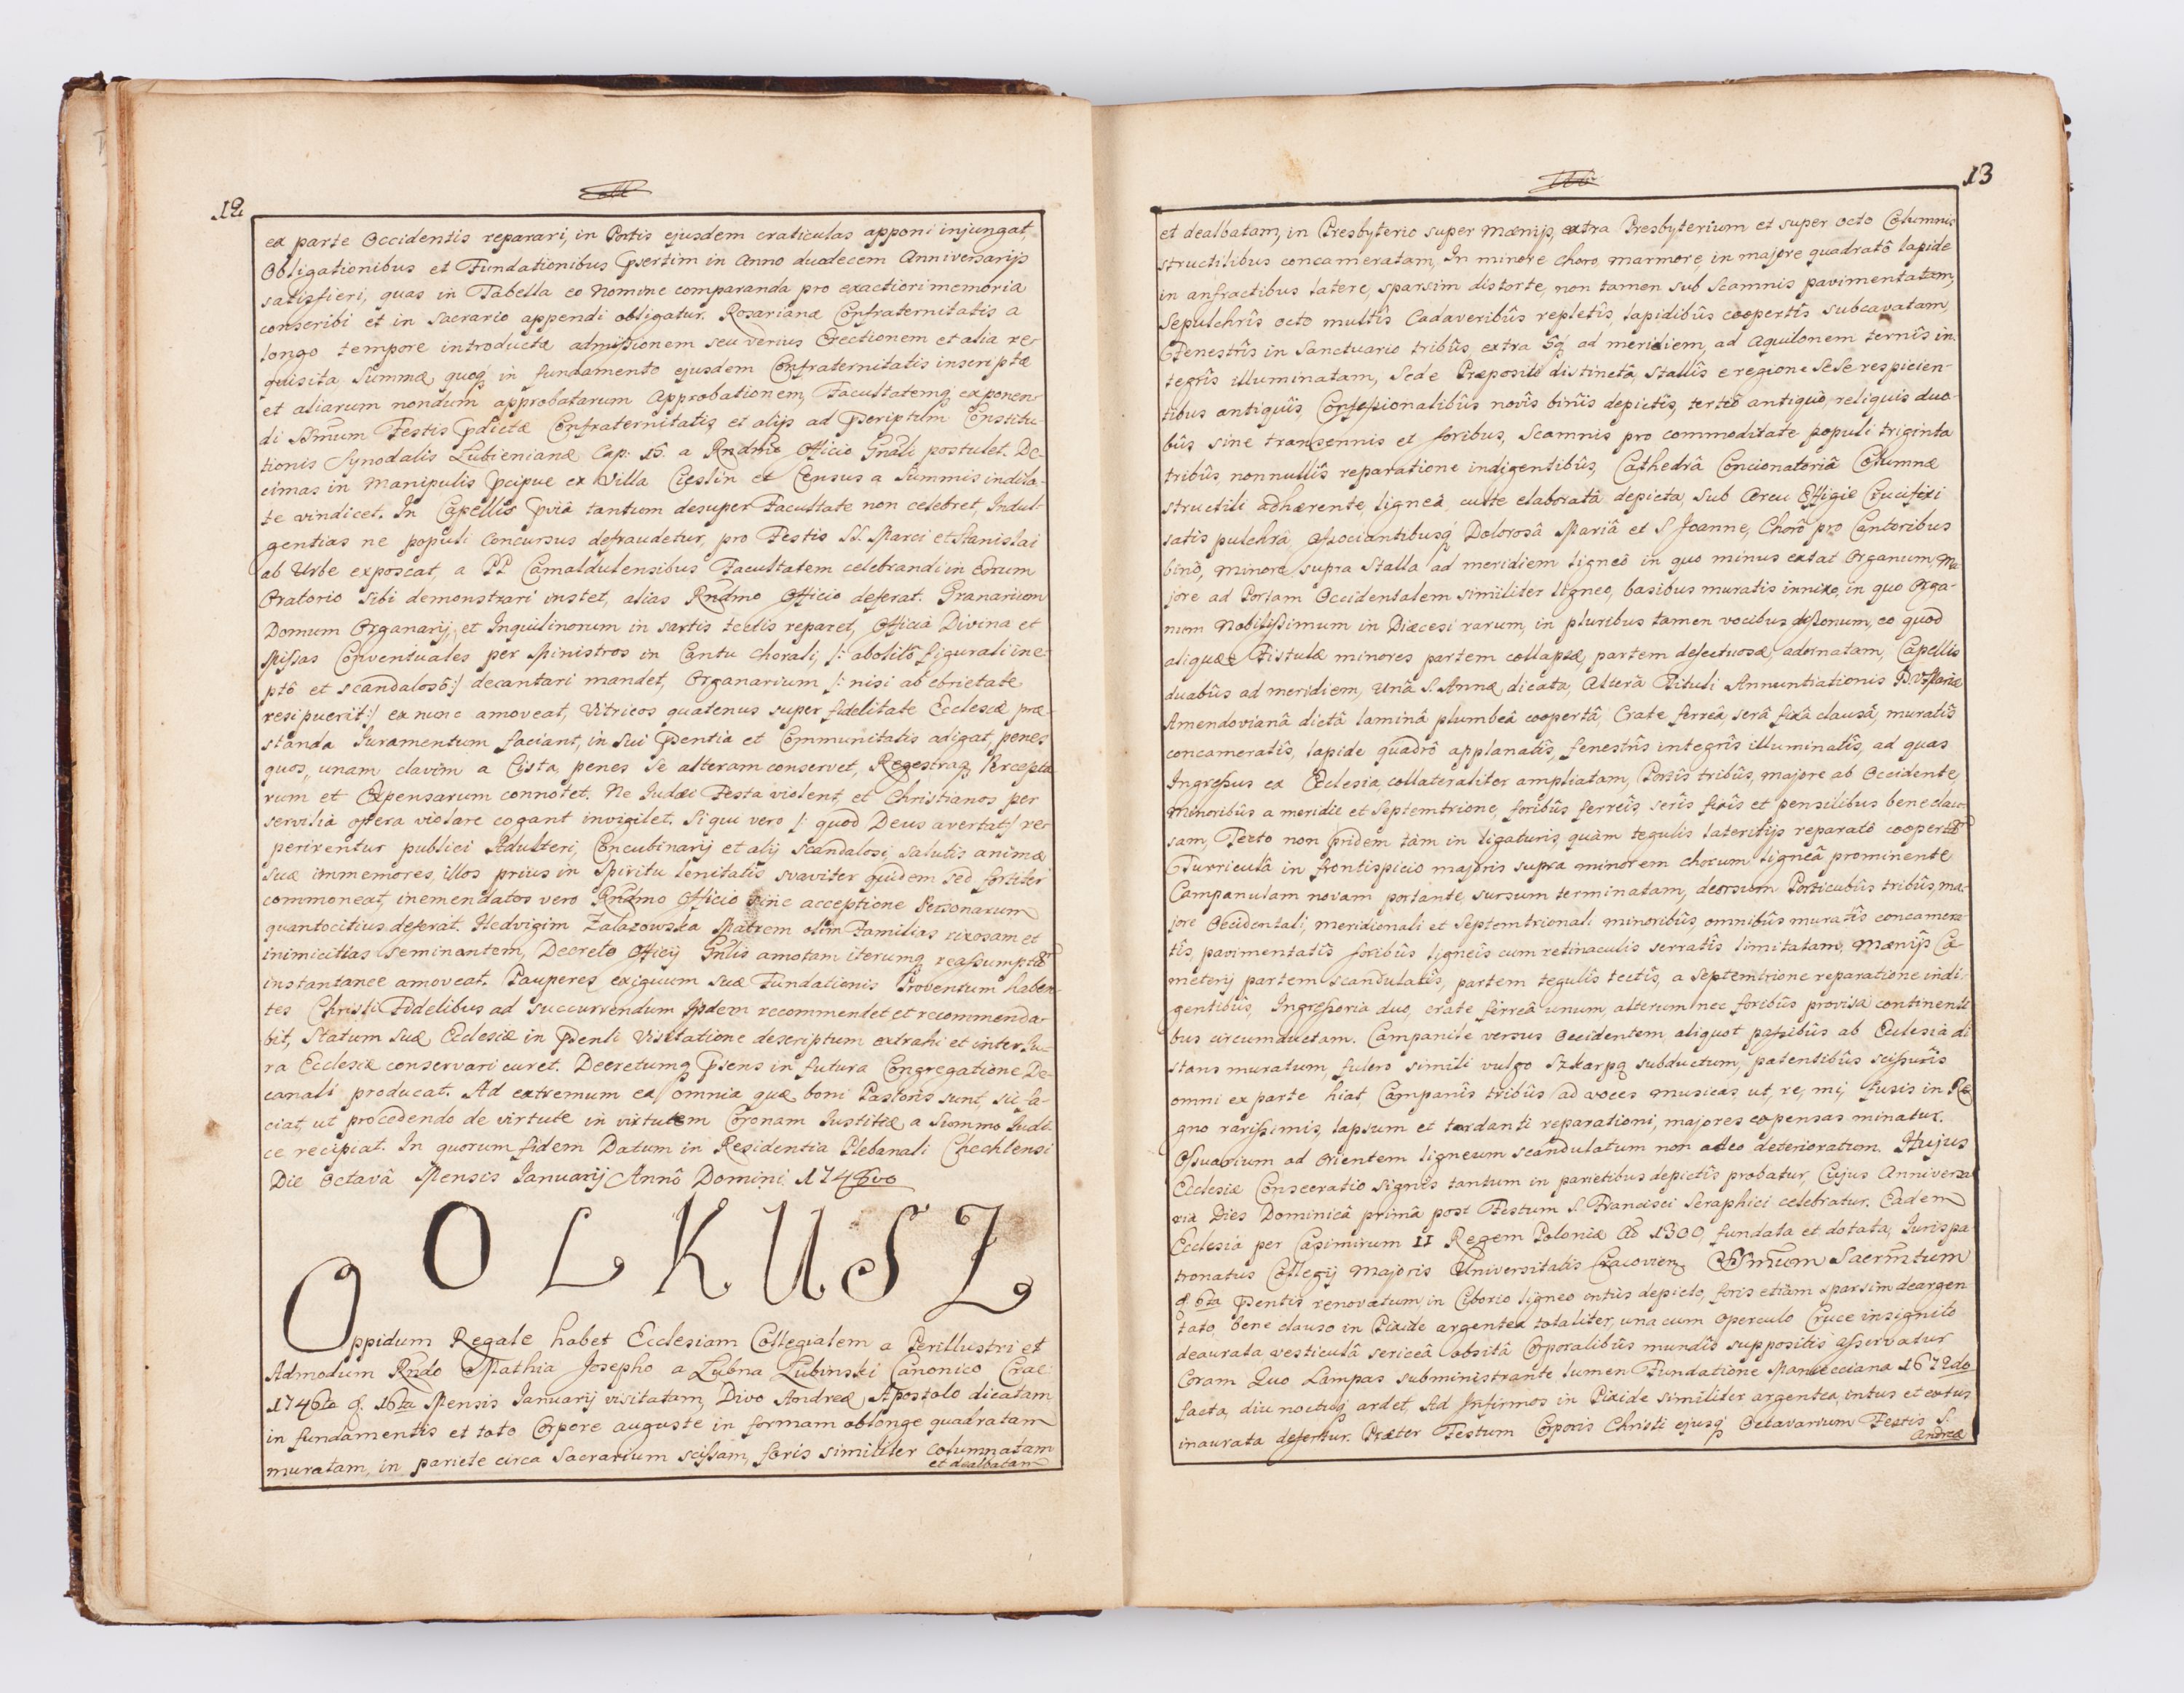 12
ex parte Occidentis reparari, in Portis ejusdem craticulas apponi injungat,
Obligationibus et Fundationibus psertim in Anno duodecem Anniversarijs
satisfieri, quas in Tabella eo Nomine comparanda pro exactiori memoria
conscribi et in Sacrario appendi obligatur. Rosarianæ Confraternitatis a
longo tempore introductæ admissionem seu verius Erectionem et alia re-
quisita, Summæ quoq in fundamento ejusdem Confraternitatis inscriptæ
et aliarum nondum approbatarum Approbationem, Facultatemq exponen-
di SSmum Festis pdictæ Confraternitatis, et alijs ad pscriptum Constitu-
tionis Synodalis Lubienianæ Cap: 16. a Rndmo Officio Gnali postulet. De-
cimas in Manipulis pcipue ex Villa Cieslin et Census a Summis indila-
te vindicet. In Capellis pviâ tantum desuper Facultate non celebret, Indul-
gentias ne populi concursus defraudetur, pro Festis SS. Marci et Stanislai
ab Urbe exposcat, a PP Camaldulensibus Facultatem celebrandi in eorum
Oratorio Sibi demonstrari instet, alias Rndmo Officio deferat. Granarium
Domum Organarij, et Inquilinorum in sartis tectis reparet, Officia Divina et
Missas Conventuales per Ministros in Cantu Chorali, /: abolitô figurali ine-
ptô et scandalosô :/ decantari mandet, Organarium /: nisi ab ebrietate
resipuerit :/ ex nunc amoveat, Vitricos quatenus super fidelitate Ecclesiæ præ-
standa Juramentum faciant, in sui psentia et Communitatis adigat, penes
quos, unam clavim a Cista, penes se alteram conservet, Regestraq Percepta-
rum et Expensarum connotet. Ne Judæi Festa violent, et Christianos per
servilia opera violare cogant invigilet. Si qui vero /: quod Deus avertat :/ re-
perirentur publici Adulteri, Concubinarij et alij Scandalosi, salutis animæ
suæ immemores, illos prius in Spiritu lenitatis svaviter quidem sed fortiter
commoneat, inemendatos vero Rndmo Officio sine acceptione Personarum
quantocitius deferat. Hedvigim Zalazowska Matrem olim Familias rixosam et
inimicitias seminantem, Decreto Officij Gnlis amotam iterumq reassumptam
instantanee amoveat. Pauperes exiguum suæ Fundationis Proventum haben-
tes Christi Fidelibus ad succurrendum Ipsdem recommendet et recommenda-
bit, Statum suæ Ecclesiæ in psenti Visitatione descriptum extrahi et inter Ju-
ra Ecclesiæ conservari curet. Decretumq psens in futura Congregatione De-
canali producat. Ad extremum ea omnia quæ boni Pastoris sunt, sic fa-
ciat, ut procedendo de virtute in virtutem Coronam Justitiæ a Summo Judi-
ce recipiat. In quorum fidem Datum in Residentia Plebanali Chechlensi
Die Octavâ Mensis Januarij Annô Domini 1746vo
OLKUSZ
Oppidum Regale habet Ecclesiam Collegialem a Perillustri et
Admodum Rndo Mathia Josepho a Lubna Lubinski Canonico Crac:
1746to d. 16ta Mensis Januarij visitatam, Divo Andreæ Apostolo dicatam
in fundamentis et toto Corpore auguste in formam oblonge quadratam
muratam, in pariete circa Sacrarium scissam, foris similiter columnatam
et dealbatam
13
et dealbatam, in Presbyterio super Mænijs, extra Presbyterium et super octo Columnis
structilibus concameratam, In minore choro, marmore, in majore quadratô lapide
in anfractibus latere, sparsim distorte, non tamen sub Scamnis pavimentatam,
Sepulchrîs octo multîs Cadaveribûs repletîs, lapidibûs coopertîs subcavatam,
Fenestrîs in Sanctuario tribûs, extra Sq ad meridiem, ad Aquilonem ternîs in-
tegrîs illuminatam, Sede Præpositi distinctâ, Stallîs e regione sese respicien-
tibus antiquîs, Confessionalibûs novîs binîs depictîs, tertiô antiquô, reliquis duo-
bûs sine transennis et foribus, Scamnis pro commoditate populi triginta
tribûs nonnullîs reparatione indigentibûs, Cathedrâ Concionatoriâ Columnæ
structili adhærente, ligneâ, culte elaboratâ depicta, sub Arcu Effigie Crucifixi
satis pulchrâ, Associantibusq Dolorosâ Mariâ et S. Joanne, Chorô pro Cantoribus
binô, minore supra Stalla ad meridiem ligneô in quo minus extat Organum, Ma-
jore ad Portam Occidentalem similiter ligneo, basibus muratis innixo, in quo Orga-
num Nobilissimum in Diæcesi rarum, in pluribus tamen vocibus dissonum, eo quod
aliquæ Fistulæ minores partem collapsæ, partem defectuosæ, adornatam, Capellis
duabûs ad meridiem, unâ S. Annæ dicata, Alterâ Tituli Annuntiationis B.V. Mariæ
Amendovianâ dictâ laminâ plumbeâ coopertâ, Crate ferreâ, serâ fixâ clausâ, muratîs
concameratîs, lapide quadrô applanatîs, fenestrîs integrîs illuminatîs, ad quas
Ingressus ex Ecclesia, collateraliter ampliatam, Portîs tribûs, majore ab Occidente,
minoribûs a meridie et Septemtrione, foribûs ferreîs, serîs fixîs et pensilibus bene clau-
sam, Tecto non pridem tàm in ligaturis, quàm tegulis lateritijs reparatô coopertam
Turriculâ in frontispicio majoris supra minorem chorum ligneâ prominente
Campanulam novam portante, sursum terminatam, deorsum Porticubûs tribûs, ma-
jore Occidentali, meridionali et Septemtrionali minoribûs, omnibûs muratîs concamera-
tîs, pavimentatîs foribûs ligneîs cum retinaculis serratîs limitatam, Mænijs Cæ-
meterij partem scandulatîs, partem tegulîs tectîs, a Septemtrione reparatione indi-
gentibûs, Ingressoria duo, crate ferreâ unum, alterum nec foribûs provisa continenti-
bus circumductam. Campanile versus Occidentem aliquot passibûs ab Ecclesia di-
stans muratum, fulcro simili vulgo Szkarpą subductum, patentibûs scissurîs
omni ex parte hiat, Campanîs tribûs ad voces musicas ut, re, mi, fusis in Re-
gno rarissimis, lapsum et tardanti reparationi, majores expensas minatur.
Ossuarium ad Orientem ligneum scandulatum non adeo deterioratum. Hujus
Ecclesiæ Consecratio signîs tantum in parietibus depictîs probatur, Cujus Anniversa-
ria Dies Dominicâ primâ post Festum S. Francisci Seraphici celebratur. Eadem
Ecclesia per Casimirum II Regem Poloniæ Aô 1300, fundata et dotata, Jurispa-
tronatus Collegij Majoris Universitatis Cracovien. SSmum Sacrmtum
d. 6ta psentis renovatum, in Ciborio ligneo intùs depicto, foris etiam sparsim deargen-
tato, bene clauso in Pixide argentea totaliter, una cum operculo Cruce insignito
deaurata vesticulâ sericeâ obsitâ Corporalibûs mundîs suppositis asservatur
Coram Quo Lampas subministrante lumen Fundatione Manieccianâ 1672do
facta, diu noctuq ardet, Ad Infirmos in Pixide similiter argentea, intus et extus
inaurata defertur. Præter Festum Corporis Christi ejusq Octavarium Festis S.
Andreæ